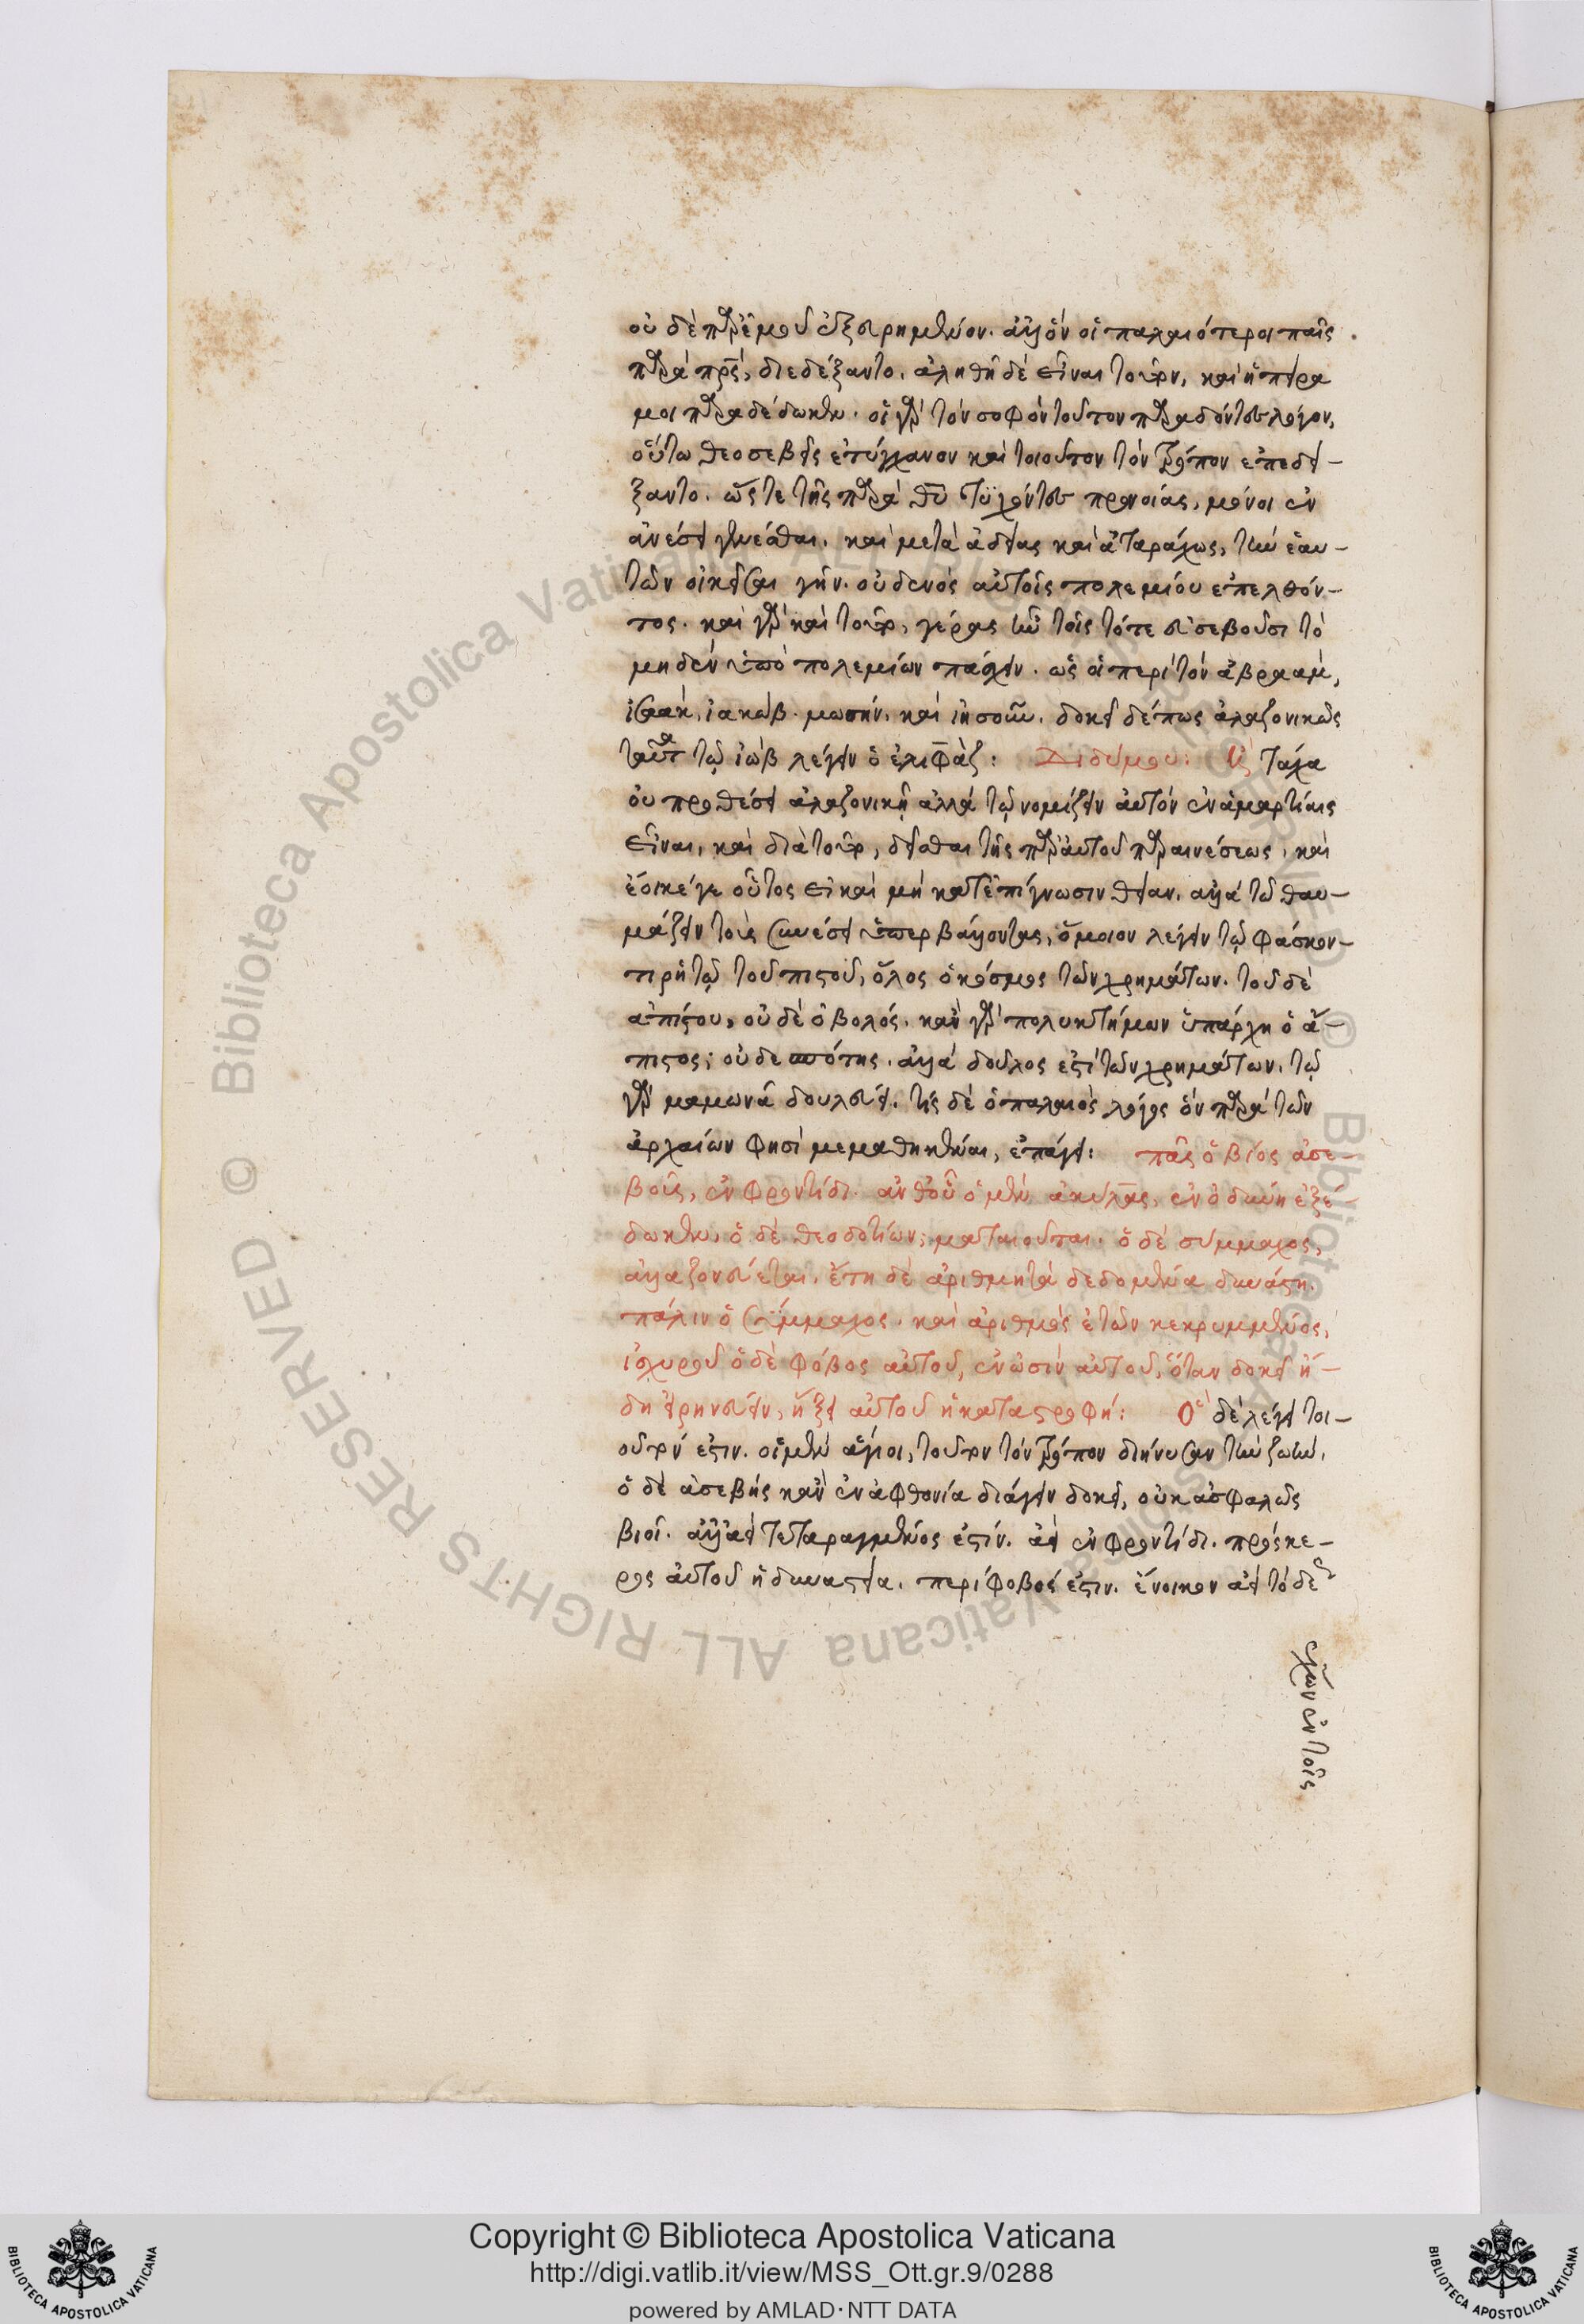 οὐδὲ παρ' ἐμοῦ ἐξευρημένον. ἀλλ' ὃν οἱ παλαιότεροι παῖς
παρὰ πρς, διεδέξαντο. ἀληθῆ δὲ εἶναι τοῦτον, καὶ ἡ πεῖρα
μοι παραδέδωκεν. οἱ γὰρ τὸν σοφὸν τοῦτον παραδόντες λόγον,
οὕτω θεοσεβεῖς ἐτύγχανον καὶ τοιοῦτον τὸν τρόπον ἐπεδεί-
ξαντο. ὥστε τῆς παρὰ θυ τυχόντες προνοίας, μόνοι ἐν
ἀνέσει γενέσθαι. καὶ μετὰ ἀδείας καὶ ἀταράχως, τὴν ἑαυ-
τῶν οἰκῆσαι γῆν. οὐδενὸς αὐτοῖς πολεμίου ἐπελθόν-
τος. καὶ γὰρ καὶ τοῦτο, γέρας ἦν τοῖς τότε εὐσεβοῦσι τὸ
μηδὲν ὑπὸ πολεμίων πάσχειν. ὡς οἱ περὶ τὸν ἀβραὰμ,
ἰσαὰκ, ἰακὼβ. μωσῆν. καὶ ἰησοῦν. δοκεῖ δέ πως ἀλαζονικῶς
ταῦτα τῷ ἰὼβ λέγειν ὁ ἐλιφὰζ: Διδύμου: Τάχα
οὐ προθέσει ἀλαζονικῇ ἀλλὰ τῷ νομίζειν αὐτὸν ἐν ἁμαρτίαις
εἶναι, καὶ διὰ τοῦτο, δεῖσθαι τῆς παρ' αὐτοῦ παραινέσεως, καὶ
ἔοικέ γε οὗτος εἰ καὶ μὴ κατ' ἐπίγνωσιν θείαν. ἀλλὰ τῶ θαυ-
μάζειν τοὺς συνέσει ὑπερβάλλοντας, ὅμοιον λέγειν τῷ φάσκον-
τι ῥητῷ τοῦ πιστοῦ, ὅλος ὁ κόσμος τῶν χρημάτων. τοῦ δὲ
ἀπίστου, οὐδὲ ὀβολός. κἂν γὰρ πολυκτήμων ὑπάρχη ὁ ἄ-
πιστος; οὐ δεσπότης. ἀλλὰ δοῦλος ἐστὶ τῶν χρημάτων. τῷ
γὰρ μαμωνᾶ δουλεύει. τίς δὲ ὁ παλαιὸς λόγος ὃν παρὰ τῶν
ἀρχαίων φησὶ μεμαθηκέναι, ἐπάγει: πᾶς ὁ βίος ἀσε-
βοῦς, ἐν φροντίδι. ἀνθ' οὗ ὁ μὲν ἀκύλας, ἐνοδυνη ἐξέ-
δωκεν, ὁ δὲ θεοδοτίων; ματαιοῦται. ὁ δὲ σύμμαχος,
ἀλαζονεύεται. ἔτη δὲ ἀριθμητὰ δεδομένα δυνάστη.
πάλιν ὁ Σύμμαχος. καὶ ἀριθμὸς ἐτῶν κεκρυμμένος,
ἰσχυροῦ ὁ δὲ φόβος αὐτοῦ, ἐν ὠσὶν αὐτοῦ, ὅταν δοκεῖ ἤ-
δη εἰρηνεύειν, ἥξει αὐτοῦ ἡ καταστροφή: Ὃ δὲ λέγει τοι-
οῦτόν ἐστιν. οἱ μὲν ἅγιοι, τοῦτον τὸν τρόπον διήνυσαν τὴν ζωήν.
ὁ δὲ ἀσεβὴς κἂν ἐν ἀφθονία διάγειν δοκεῖ, οὐκ ἀσφαλῶς
βιοῖ. ἀλλ' ἀεὶ τεταραγμένος ἐστίν. ἀεὶ ἐν φροντίδι. πρόσκαι-
ρος αὐτοῦ ἡ δυναστεία. περίφοβός ἐστιν. ἔνοικον ἀεὶ τὸ δέος
ἔχων ἐν τοῖς
Copyright © Biblioteca Apostolica Vaticana
http://digi.vatlib.it/view/MSS_Ott.gr.9/0288
powered by AMLAD·NTT DATA
© Biblioteca Apostolica Vaticana ALL RIGHTS RESERVED
BIBLIOTECA APOSTOLICA VATICANA
BIBLIOTECA APOSTOLICA VATICANA